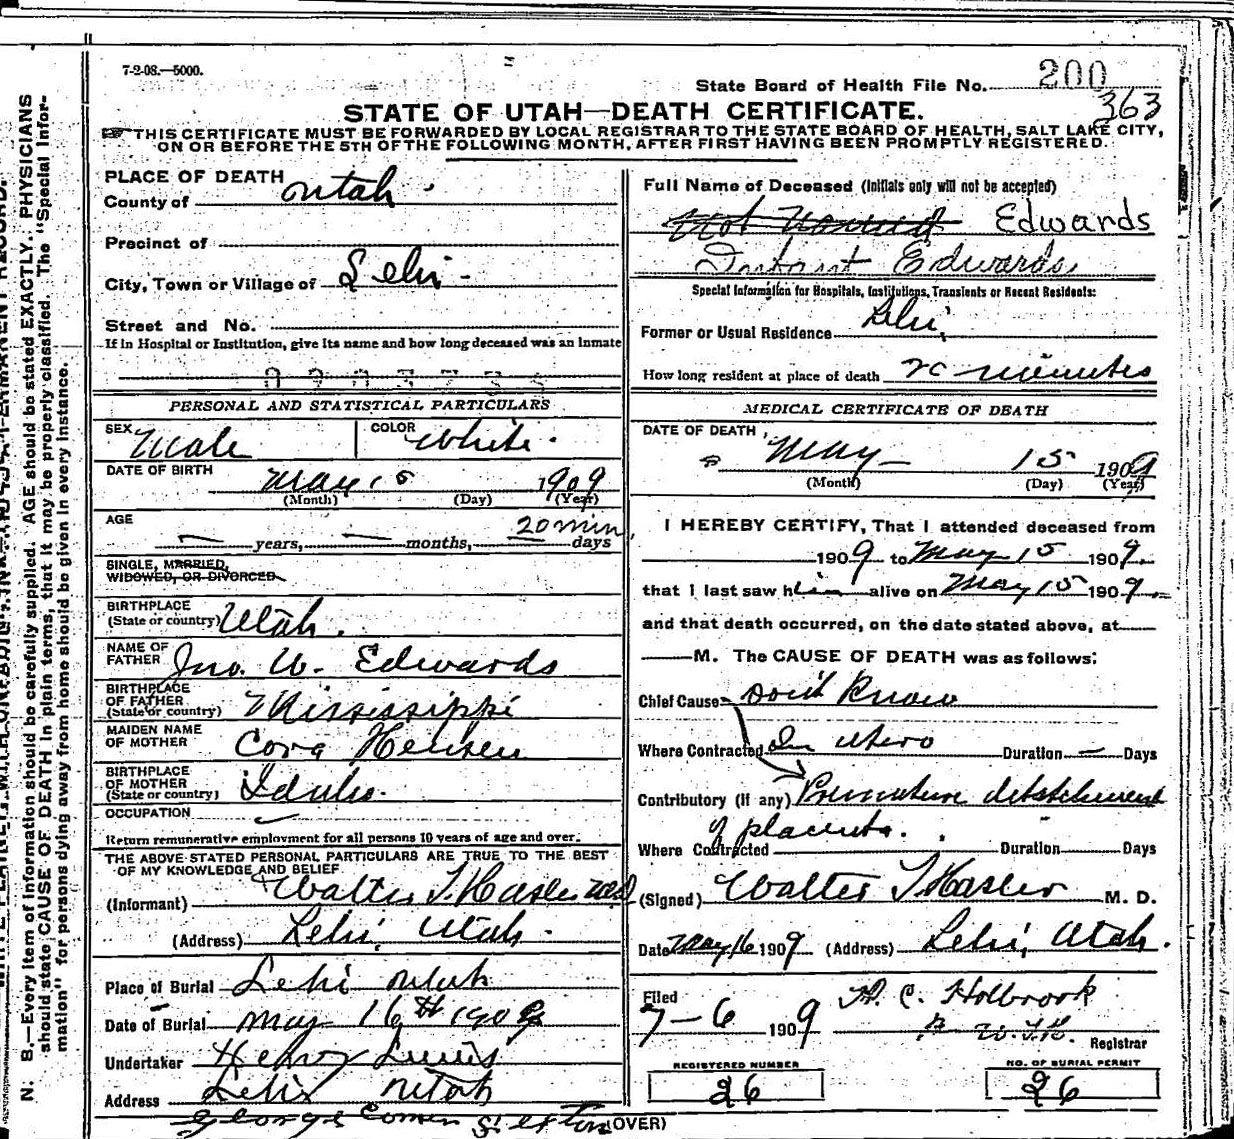 7-2-08.—5000.
State Board of Health File No. 200
363
STATE OF UTAH—DEATH CERTIFICATE.
THIS CERTIFICATE MUST BE FORWARDED BY LOCAL REGISTRAR TO THE STATE BOARD OF HEALTH, SALT LAKE CITY,
ON OR BEFORE THE 5TH OF THE FOLLOWING MONTH, AFTER FIRST HAVING BEEN PROMPTLY REGISTERED.
PLACE OF DEATH
County of Utah.
Precinct of
City, Town or Village of Lehi
Street and No.
If in Hospital or Institution, give its name and how long deceased was an inmate
PERSONAL AND STATISTICAL PARTICULARS
SEX Male COLOR White.
DATE OF BIRTH May 15 1909
(Month) (Day) (Year)
AGE 20 min
— years, — months, — days
SINGLE, MARRIED,
WIDOWED, OR DIVORCED
BIRTHPLACE
(State or country) Utah.
NAME OF
FATHER Jno. W. Edwards
BIRTHPLACE
OF FATHER
(State or country) Mississippi
MAIDEN NAME
OF MOTHER Cora Hensen
BIRTHPLACE
OF MOTHER
(State or country) Idaho.
OCCUPATION
Return remunerative employment for all persons 10 years of age and over.
THE ABOVE STATED PERSONAL PARTICULARS ARE TRUE TO THE BEST
OF MY KNOWLEDGE AND BELIEF
(Informant) Walter T. Hasler MD
(Address) Lehi, Utah.
Place of Burial Lehi Utah
Date of Burial May 16th 1909
Undertaker Henry Lewis
Address Lehi Utah
George Comer Sexton
(OVER)
Full Name of Deceased (Initials only will not be accepted)
Not Named Edwards
Infant Edwards
Special Information for Hospitals, Institutions, Transients or Recent Residents:
Former or Usual Residence Lehi,
How long resident at place of death 20 minutes
MEDICAL CERTIFICATE OF DEATH
DATE OF DEATH
May 15 1909
(Month) (Day) (Year)
I HEREBY CERTIFY, That I attended deceased from
1909 to May 15 1909.
that I last saw him alive on May 15 1909.
and that death occurred, on the date stated above, at
M. The CAUSE OF DEATH was as follows:
Chief Cause Don't Know
Where Contracted In utero Duration — Days
Contributory (if any) Premature detatchment
of placenta.
Where Contracted Duration Days
(Signed) Walter T Hasler M. D.
Date May 16 1909 (Address) Lehi, Utah.
Filed
7-6 1909 A. C. Holbrook
W. T. H. Registrar
REGISTERED NUMBER
26
NO. OF BURIAL PERMIT
26
N. B.—Every item of information should be carefully supplied. AGE should be stated EXACTLY. PHYSICIANS
should state CAUSE OF DEATH in plain terms, that it may be properly classified. The "Special Infor-
mation" for persons dying away from home should be given in every instance.